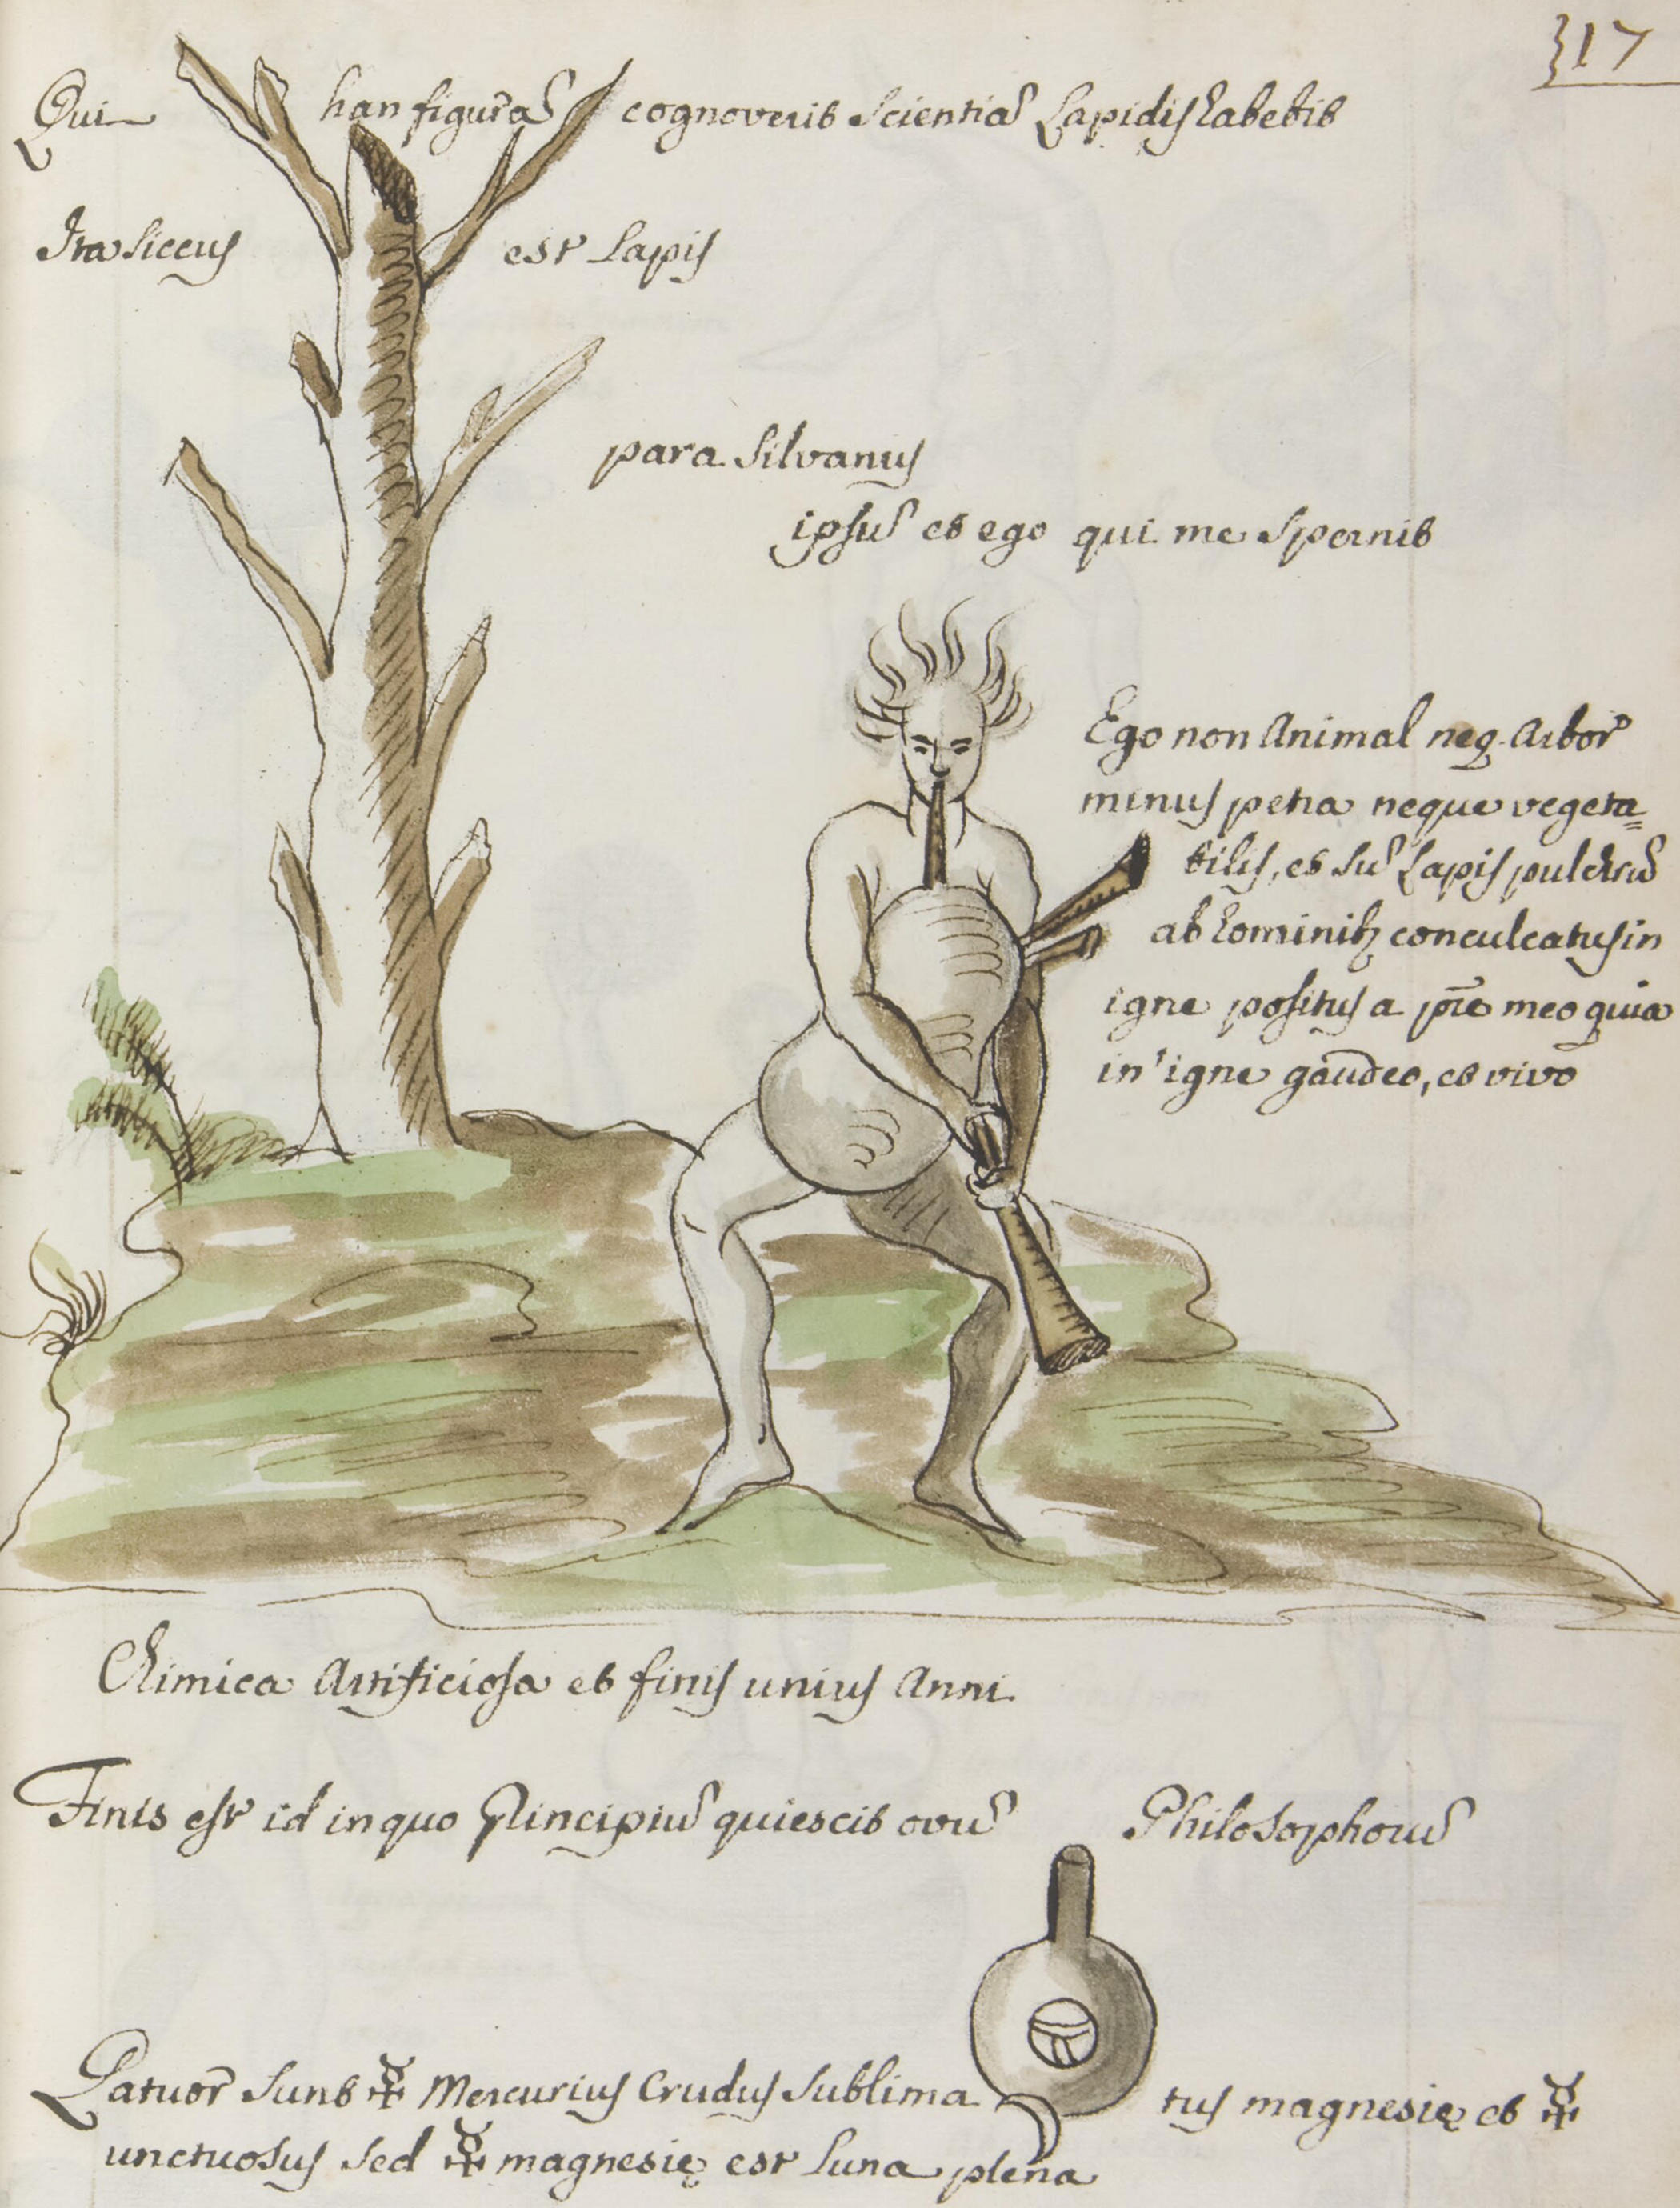 317
Qui han figurã cognoverit scientiã Lapidis habebit
Ita siccus est Lapis
para Silvanus
ipsũ et ego qui me spernit
Ego non Animal neq. Arbor
minus petra neque vegeta=
bilis, et sũ Lapis pulchrũ
ab hominibꝫ conculcatus in
igne positus a pr̄e meo quia
in igne gaudeo, et vivo
Chimica Artificiosa et finis unius Anni.
Finis est id in quo Principiũ quiescit ovũ Philosophorũ
Qatuor sunt ☿ Mercurius Crudus sublimatus magnesię et ☿
unctuosus sed ☿ magnesię est luna plena